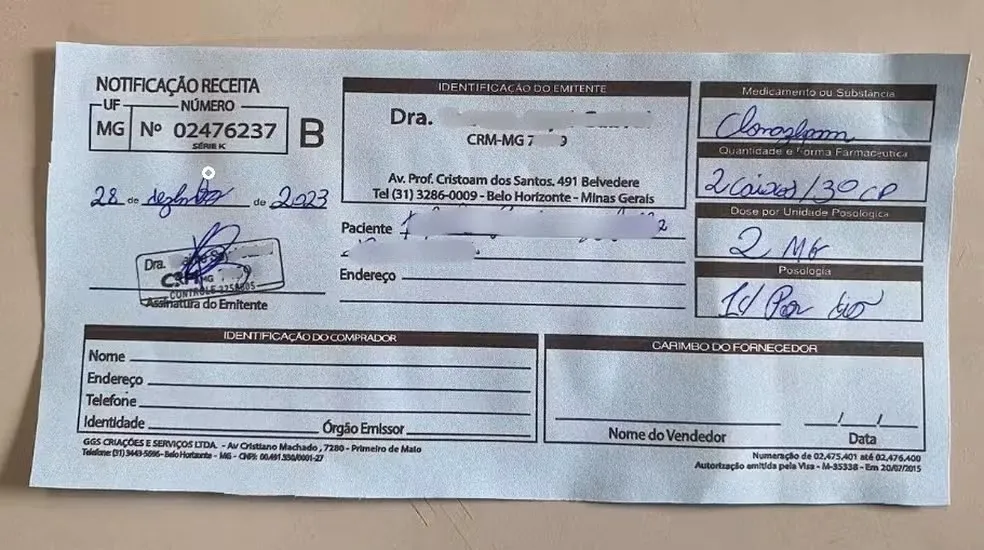 NOTIFICAÇÃO RECEITA
UF NÚMERO
MG Nº 02476237
SÉRIE K
B
28 de dezembro de 2023
Dra.
CRM MG
CONTROLE
Assinatura do Emitente
IDENTIFICAÇÃO DO EMITENTE
Dra.
CRM-MG 7 9
Av. Prof. Cristoam dos Santos. 491 Belvedere
Tel (31) 3286-0009 - Belo Horizonte - Minas Gerais
Paciente
Endereço
Medicamento ou Substância
Clonazepam
Quantidade e Forma Farmacêutica
2 caixas/30 CP
Dose por Unidade Posológica
2 MG
Posologia
1 Por dia
IDENTIFICAÇÃO DO COMPRADOR
Nome
Endereço
Telefone
Identidade Órgão Emissor
CARIMBO DO FORNECEDOR
/ /
Nome do Vendedor Data
GGS CRIAÇÕES E SERVIÇOS LTDA. - Av Cristiano Machado, 7280 - Primeiro de Maio
Telefone: (31) 3443-5696 - Belo Horizonte - MG - CNPJ: 00.491.330/0001-27
Numeração de 02.475.401 até 02.476.400
Autorização emitida pela Visa - M-35338 - Em 20/07/2015